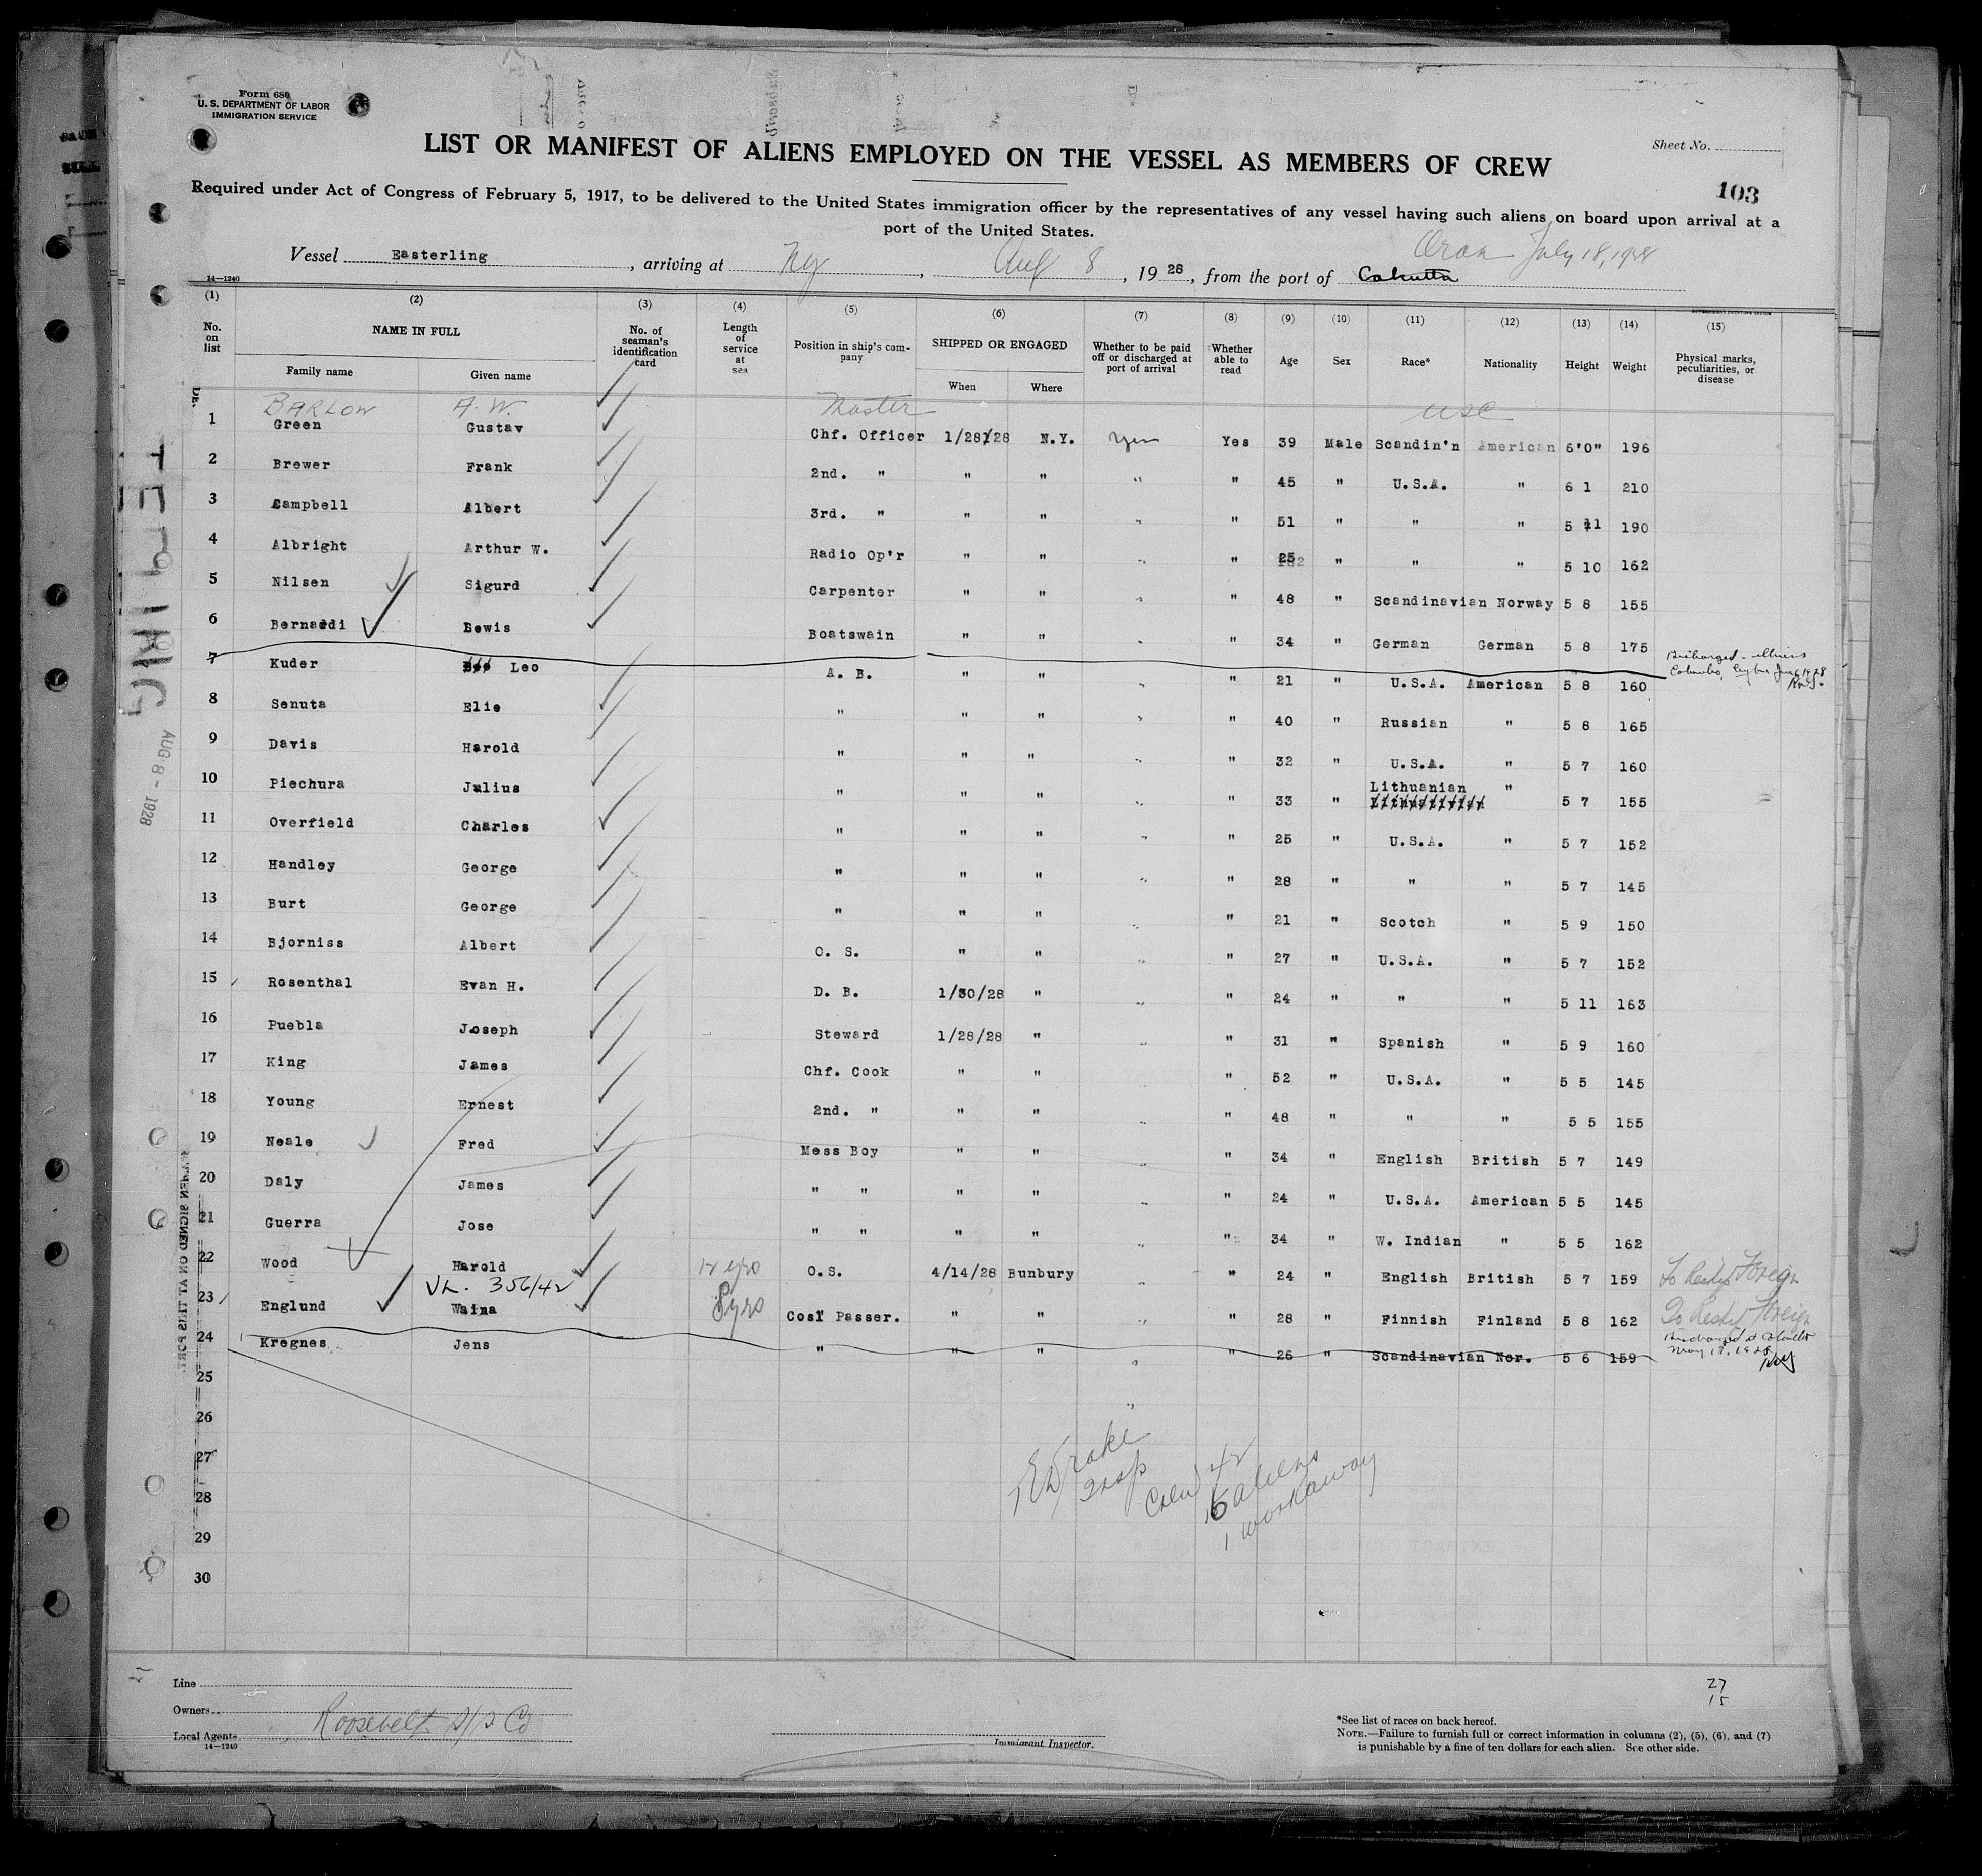 Form 680
U. S. DEPARTMENT OF LABOR
IMMIGRATION SERVICE
LIST OR MANIFEST OF ALIENS EMPLOYED ON THE VESSEL AS MEMBERS OF CREW
Sheet No.
103
Required under Act of Congress of February 5, 1917, to be delivered to the United States immigration officer by the representatives of any vessel having such aliens on board upon arrival at a
port of the United States.
Oran July 18, 1928
Vessel Easterling, arriving at Ny, Aug 8, 1928, from the port of Calcutta
14—1240
GOVERNMENT PRINTING OFFICE
(1) (2) (3) (4) (5) (6) (7) (8) (9) (10) (11) (12) (13) (14) (15)
No. on list NAME IN FULL Family name Given name No. of seaman's identification card Length of service at sea Position in ship's company SHIPPED OR ENGAGED When Where Whether to be paid off or discharged at port of arrival Whether able to read Age Sex Race* Nationality Height Weight Physical marks, peculiarities, or disease
BARLOW A. W. Master USC
1 Green Gustav Chf. Officer 1/28/28 N.Y. Yes Yes 39 Male Scandin'n American 6'0" 196
2 Brewer Frank 2nd. " " " " " 45 " U.S.A. " 6 1 210
3 Campbell Albert 3rd. " " " " " 51 " " " 5 11 190
4 Albright Arthur W. Radio Op'r " " " " 25 " " " 5 10 162
5 Nilsen Sigurd Carpenter " " " " 48 " Scandinavian Norway 5 8 155
6 Bernardi Lewis Boatswain " " " " 34 " German German 5 8 175
7 Kuder Leo A. B. " " " " 21 " U.S.A. American 5 8 160 Discharged - illness
Colombo, Ceylon June 1928
8 Senuta Elie " " " " " 40 " Russian " 5 8 165
9 Davis Harold " " " " " 32 " U.S.A. " 5 7 160
10 Piechura Julius " " " " " 33 " Lithuanian " 5 7 155
11 Overfield Charles " " " " " 25 " U.S.A. " 5 7 152
12 Handley George " " " " " 28 " " " 5 7 145
13 Burt George " " " " " 21 " Scotch " 5 9 150
14 Bjorniss Albert O. S. " " " " 27 " U.S.A. " 5 7 152
15 Rosenthal Evan H. D. B. 1/30/28 " " " 24 " " " 5 11 163
16 Puebla Joseph Steward 1/28/28 " " 31 " Spanish " 5 9 160
17 King James Chf. Cook " " " 52 " U.S.A. " 5 5 145
18 Young Ernest 2nd. " " " " 48 " " " 5 5 155
19 Neale Fred Mess Boy " " " " 34 " English British 5 7 149
20 Daly James " " " " " " 24 " U.S.A. American 5 5 145
21 Guerra Jose " " " " " " 34 " W. Indian " 5 5 162
22 Wood Harold 12 yrs O.S. 4/14/28 Bunbury " " 24 " English British 5 7 159 To Reship Foreign
VL. 356/42
23 Englund Waina 8 yrs Coal Passer. " " " " 28 " Finnish Finland 5 8 162 To Reship Foreign
24 Kregnes Jens " " " " " 26 " Scandinavian Nor. 5 6 159 Discharged at Calcutta
May 18, 1928
25
26
27
28
29
30
Drake
Insp
Crew 42
6 aliens
1 workaway
AUG 8 - 1928
SEAMEN SIGNED ON AT THIS PORT
27
15
21
Line
Owners
Local Agents Roosevelt S/S Co
14—1240
Immigrant Inspector.
*See list of races on back hereof.
NOTE.—Failure to furnish full or correct information in columns (2), (5), (6), and (7)
is punishable by a fine of ten dollars for each alien. See other side.